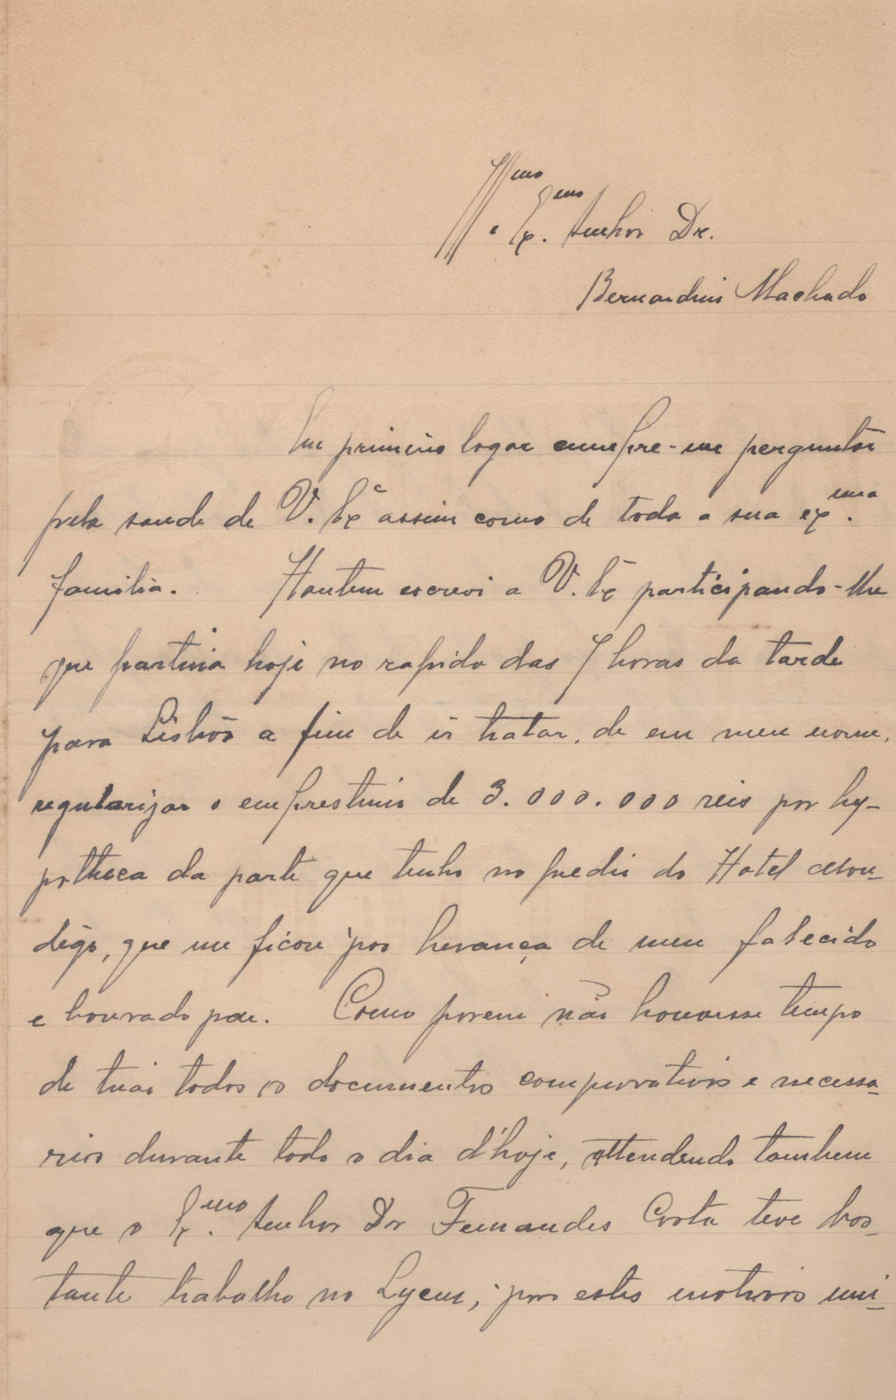 Illmo e Exmo. Senhor Dr.
Bernardino Machado
Em primeiro logar cumpre-me perguntar
pela saude de V. Exª assim como de toda a sua exma.
familia. Hontem escrevi a V. Exª participando-lhe
que partiria hoje no rapido das 7 horas da tarde
para Lisbôa a fim de ir tratar, de em meu nome,
regularizar o emprestimo de 3.000.000 reis por hy-
potheca da parte que tenho no predio do Hotel Mon-
dêgo, que me ficou por herança de meu falecido
e honrado pae. Como porem não houvesse tempo
de tirar todos os documentos comprovativos e necessa-
rios durante todo o dia d'hoje, attendendo tambem
que o Exmo. Senhor Dr Fernandes Costa teve bas-
tante trabalho no Lyceu, por estes motivos uni-